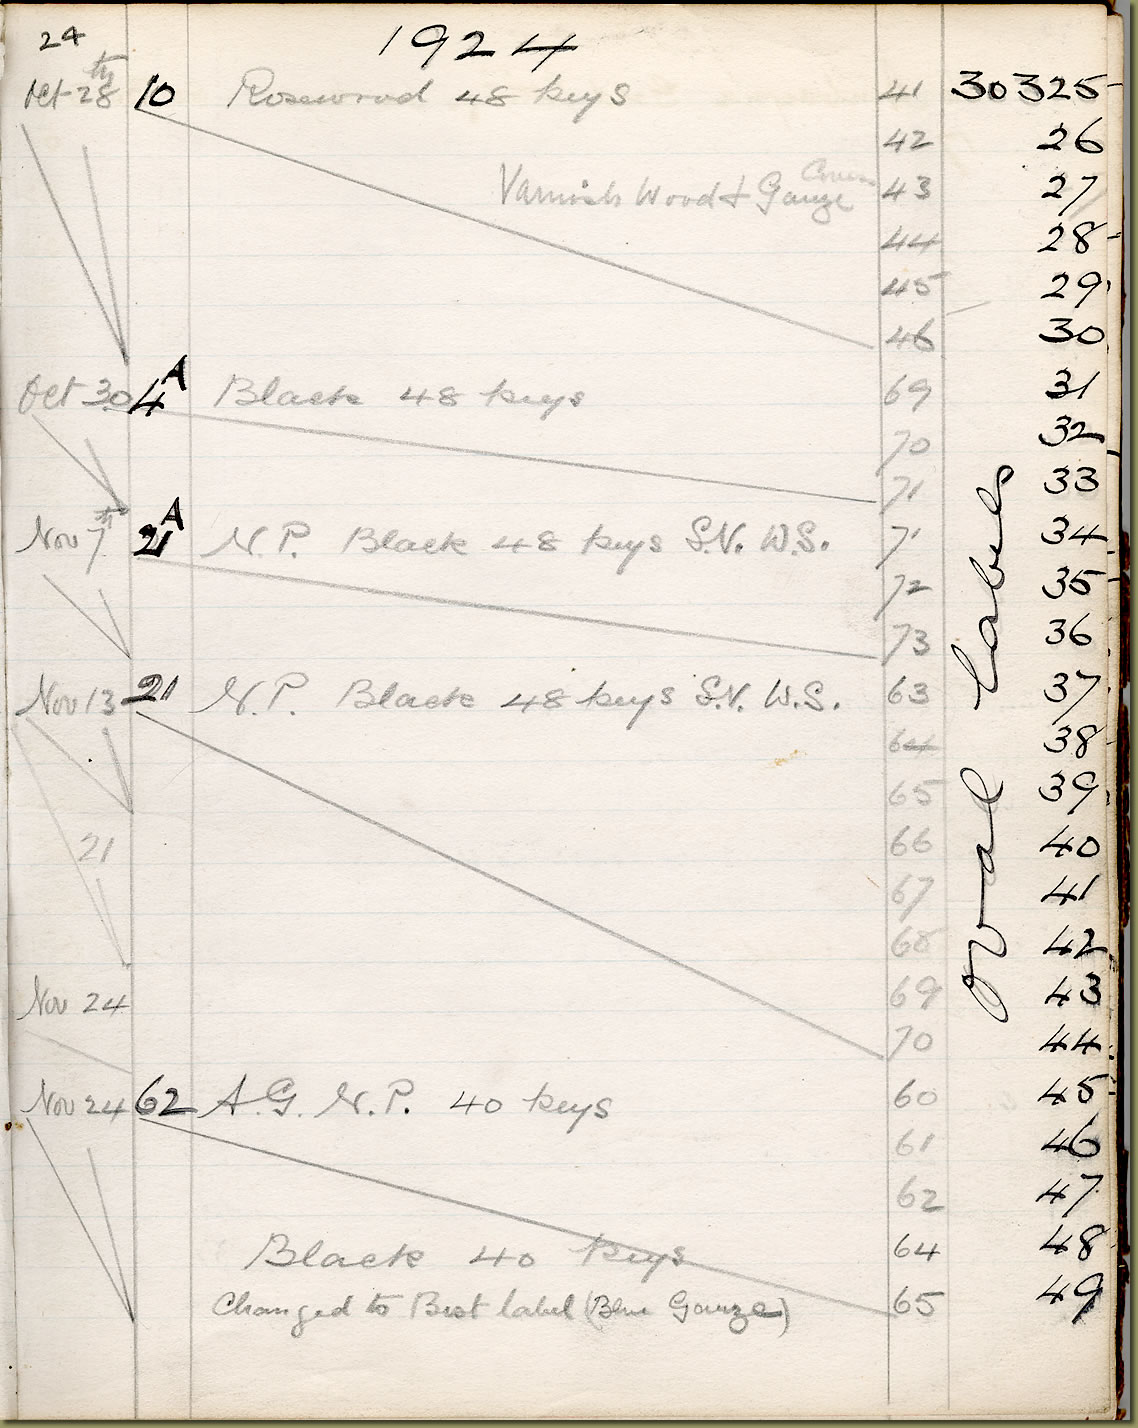 24 1924
Oct 28th 10 Rosewood 48 keys 41 30325
42 26
Covers
Varnish Wood & Gauze 43 27
44 28
45 29
46 30
Oct 30 4A Black 48 keys 69 31
70 32
71 33
Nov 7th 21A N.P. Black 48 keys S.V. W.S. 71 34
72 35
73 36
Nov 13 21 N.P. Black 48 keys S.V. W.S. 63 37
64 38
65 39
21 66 40
67 41
68 42
Nov 24 69 43
70 44
Nov 24 62 A.G. N.P. 40 keys 60 45
61 46
62 47
Black 40 keys 64 48
Changed to Best label (Blue Gauze) 65 49
Oval Labels